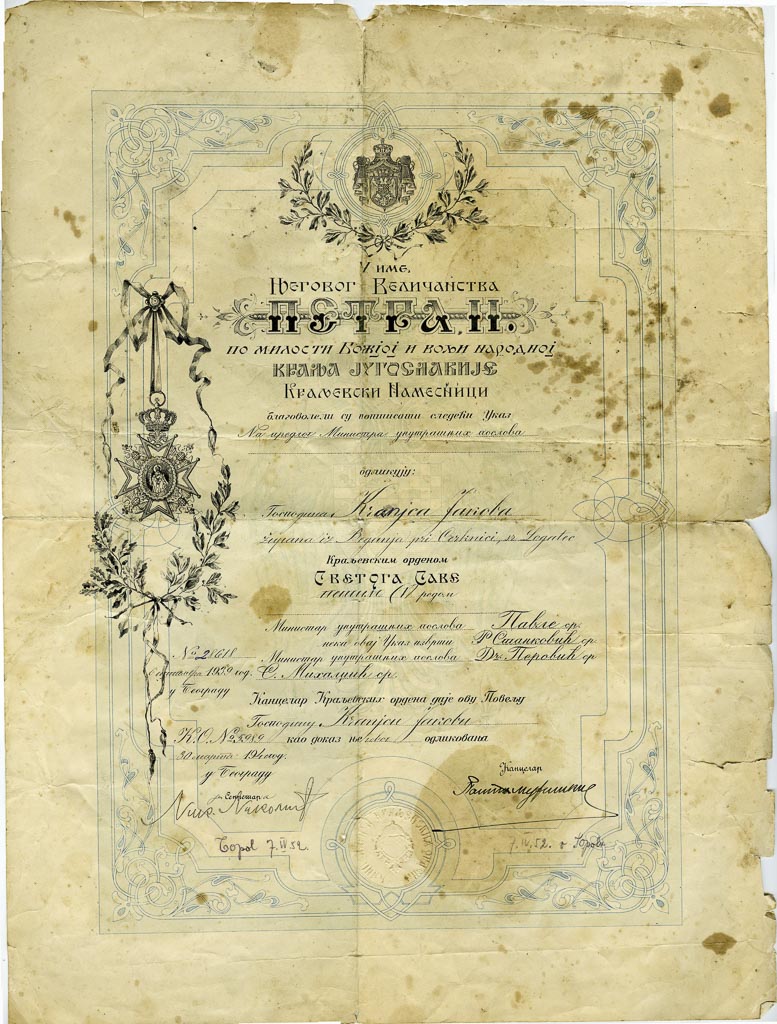 У име,
Његовог Величанства
ПЕТРА II.
по милости Божјој и вољи народној
КРАЉА ЈУГОСЛАВИЈЕ
Краљевски Намесници
благоволели су потписати следећи Указ
На предлог Министра унутрашњих послова
одликују:
Господина Kranjca Jakoba
župana iz Begunja pri Cerknici, sr. Logatec
Краљевским орденом
СВЕТОГА САВЕ
редом
Министар унутрашњих послова Павле ср.
нека овај Указ изврши Р Станковић ср.
№ 28618 Министар унутрашњих послова Др. Перовић ср
1939 год. С. Михалџић ср.
у Београду
Канцелар Краљевских ордена даје ову Повељу
Господину Kranjcu Jakobu
К.О. № као доказ његова одликовања
30 марта 1940 год.
у Београду
Канцелар
Секретар
7.IV 52.
7.IV.52.